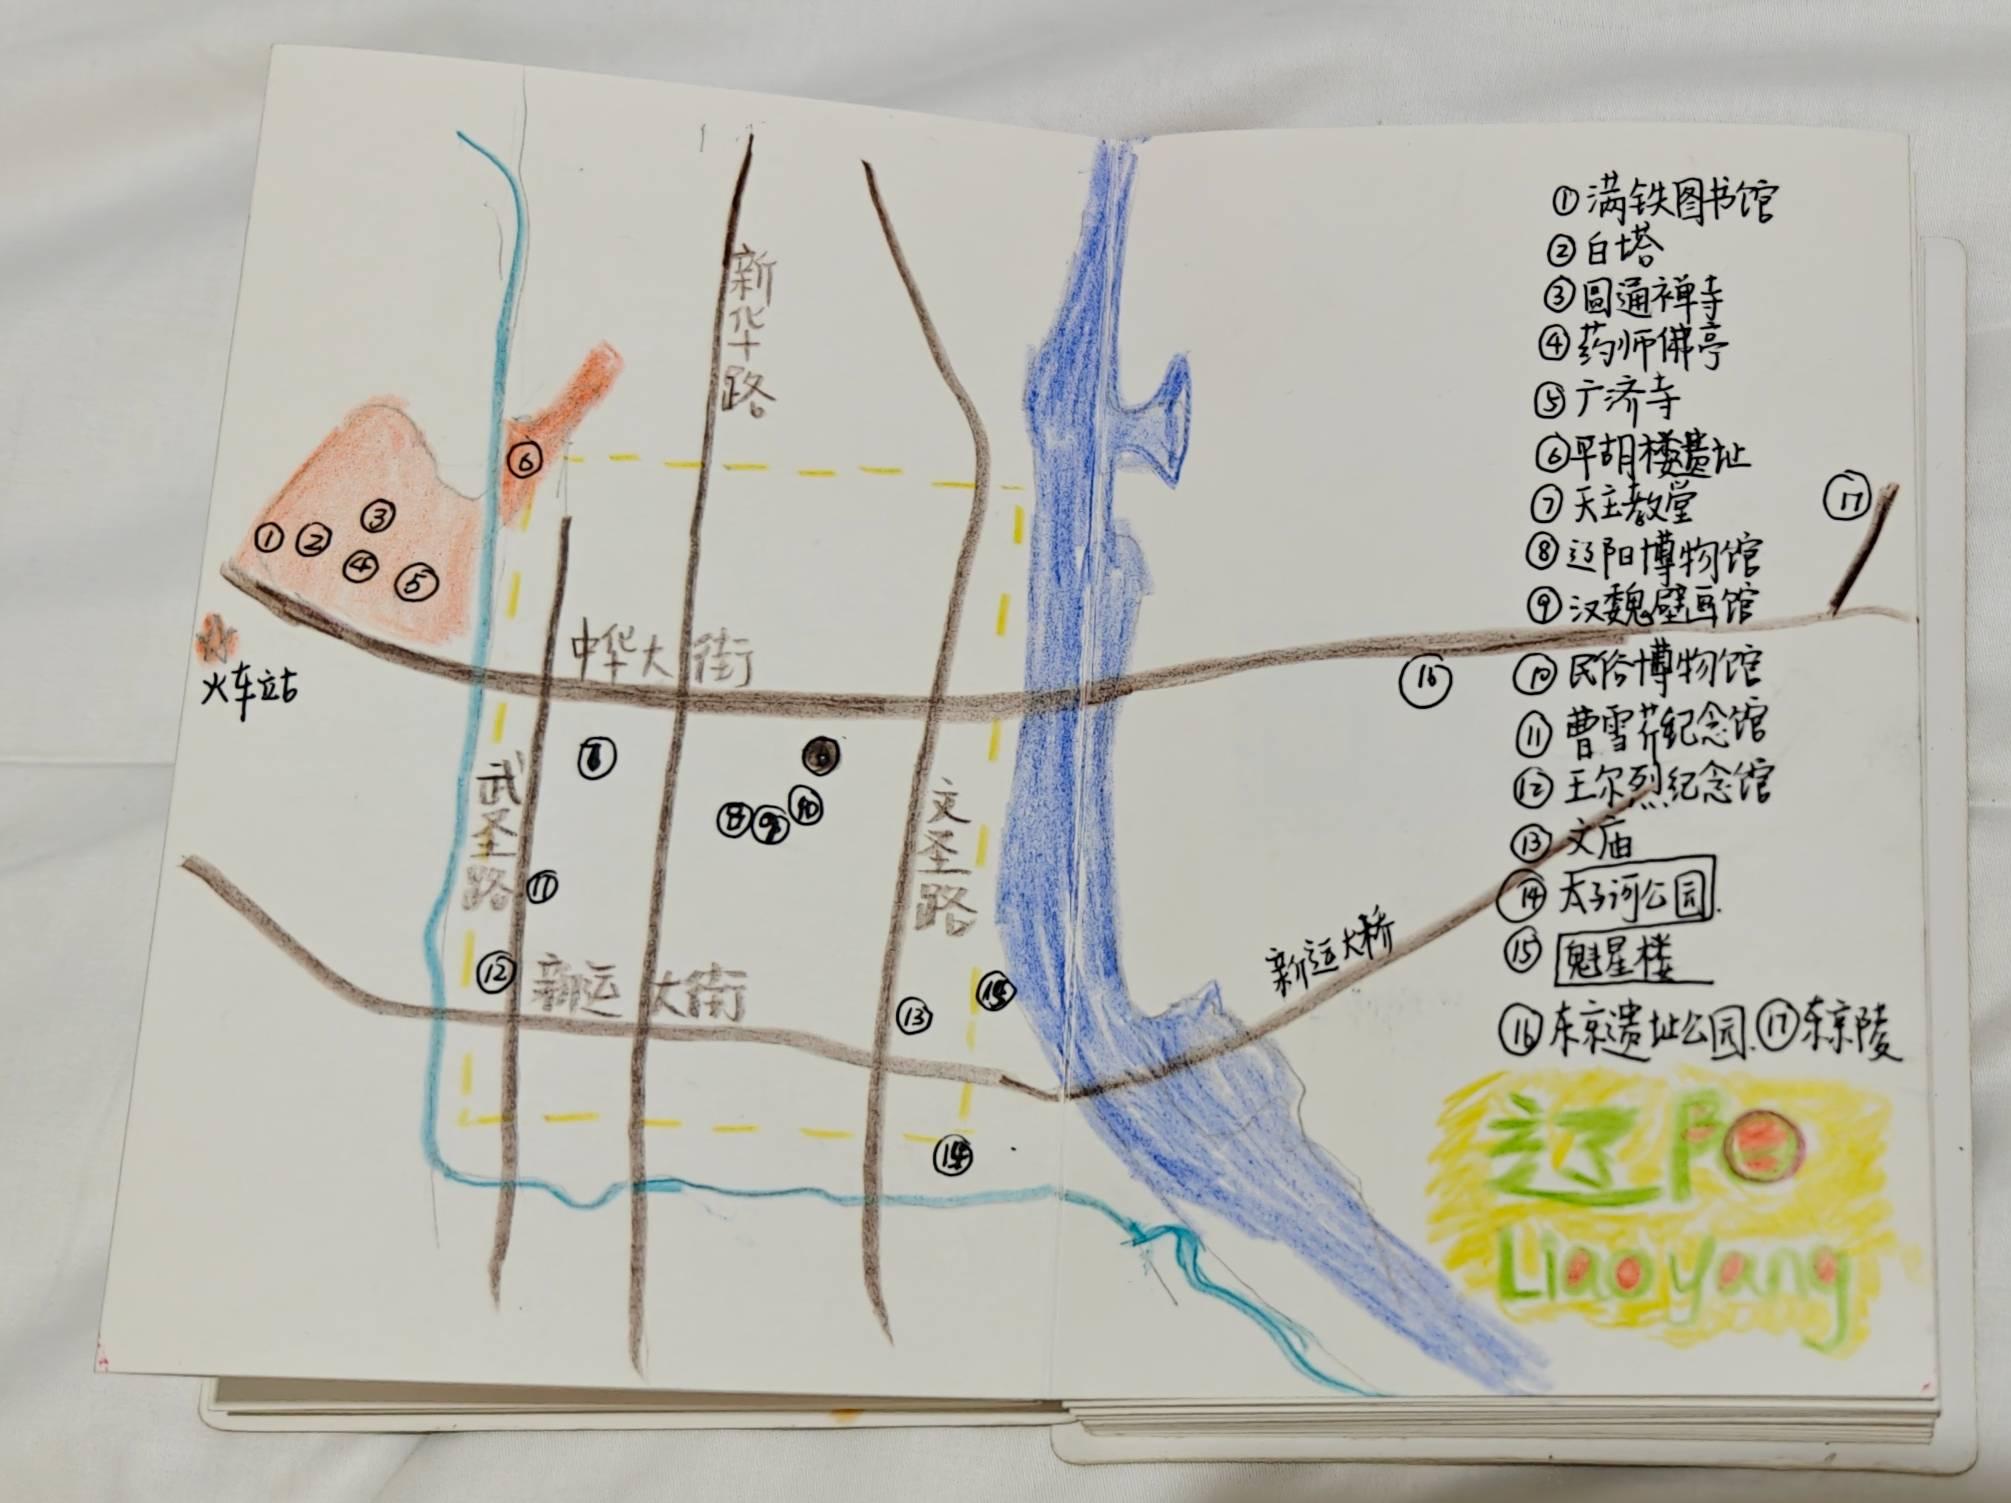 新华路
中华大街
火车站
武圣路
文圣路
新运大街
新运大桥
①
②
③
④
⑤
⑥
⑧
⑨
⑩
⑪
⑫
⑬
⑭
⑯
⑰
①满铁图书馆
②白塔
③圆通禅寺
④药师佛亭
⑤广济寺
⑥平胡楼遗址
⑦天主教堂
⑧辽阳博物馆
⑨汉魏壁画馆
⑩民俗博物馆
⑪曹雪芹纪念馆
⑫王尔烈纪念馆
⑬文庙
⑭太子河公园
⑮魁星楼
⑯东京遗址公园 ⑰东京陵
辽阳
Liaoyang